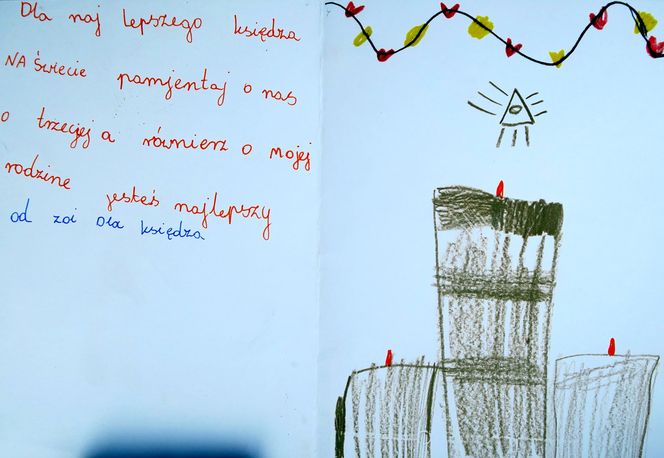 Dla naj lepszego księdza
NA Świecie pamjentaj o nas
o trzeciej a rówmierz o mojej
rodzine jesteś najlepszy
od zoi Dla księdza